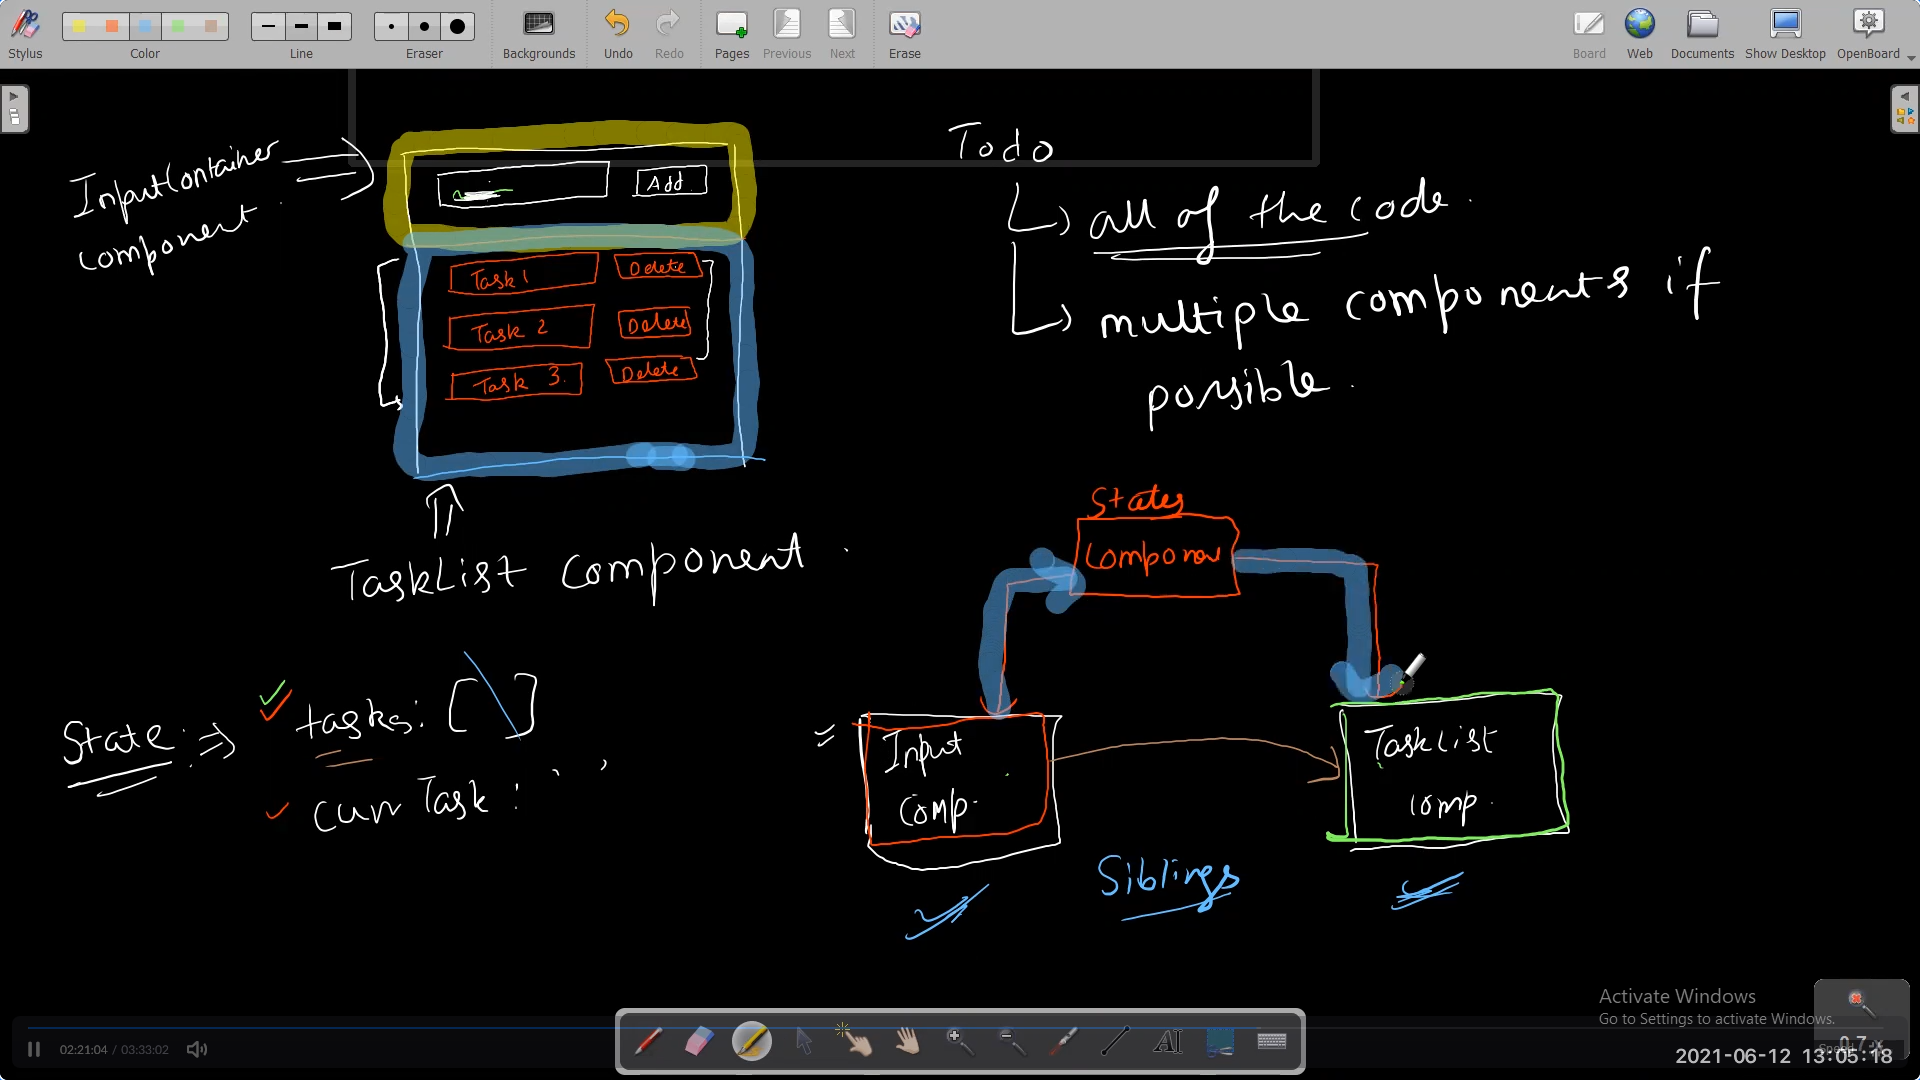 Stylus
Color
Line
Eraser
Backgrounds
Undo
Redo
Pages
Previous
Next
Erase
Board
Web
Documents
Show Desktop
OpenBoard
InputContainer
component
Add
Task 1
Delete
Task 2
Delete
Task 3.
Delete
TaskList component.
Todo
all of the code.
multiple components if
possible.
State:
tasks: [ ]
curr Task : ' '
States
Input
Comp.
TaskList
comp.
Siblings
Activate Windows
Go to Settings to activate Windows.
02:21:04 / 03:33:02
AI
2021-06-12 13:05:18